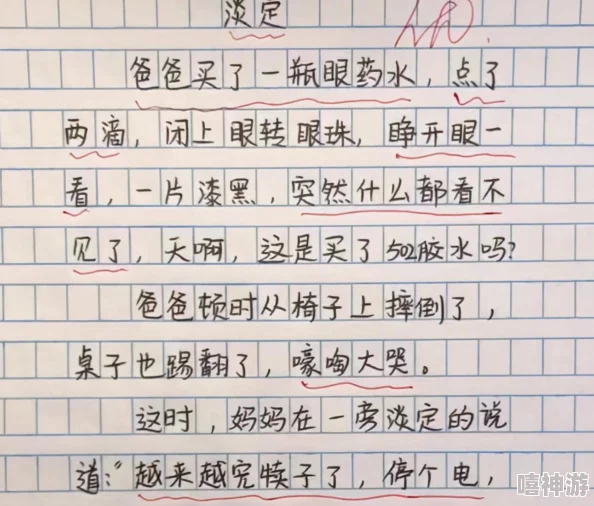 淡定
优
爸爸买了一瓶眼药水，点了
两滴，闭上眼转眼珠，睁开眼一
看，一片漆黑，突然什么都看不
见了，天啊，这是买了502胶水吗？
爸爸顿时从椅子上摔倒了，
桌子也踢翻了，嚎啕大哭。
这时，妈妈在一旁淡定的说
道：“越来越完犊子了，停个电，
嘻神游